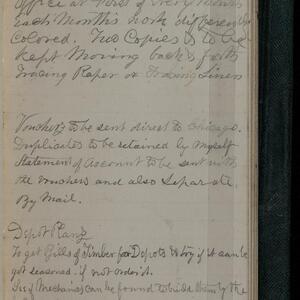 Office at first of every Month
Each Months work differently
colored. Two Copies is to be
kept Moving back & forth
Tracing Paper or Tracing Linen
Vouchers to be sent direct to Chicago.
Duplicates to be retained by Myself
Statement of Account to be sent with
the vouchers and also Separate
By Mail.
Depot Plans
To get Bills of Timber for Depots & try if it can be
got seasoned. if not order it.
See if Mechanics can be found to build them by the